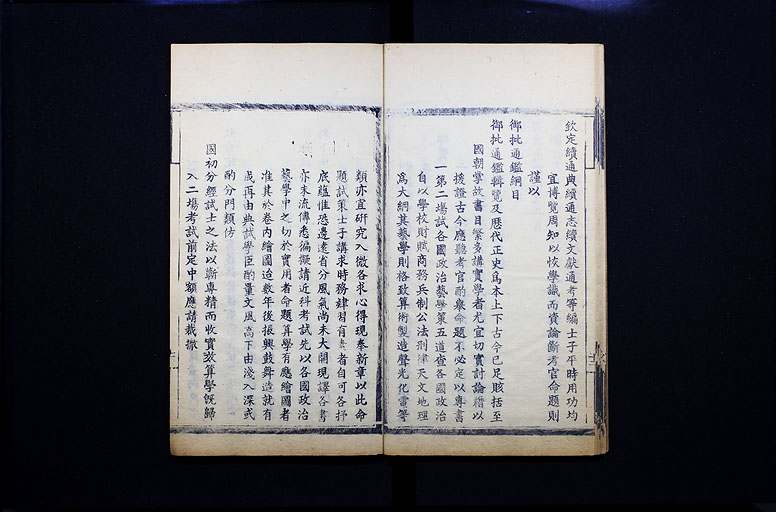 欽定續通典續通志續文獻通考等編士子平時用功均
宜博覽周知以恢學識而資論斷考官命題則
謹以
御批通鑑綱目
御批通鑑輯覽及歷代正史爲本上下古今已足賅括至
國朝掌故書目繁多講實學者尤宜切實討論藉以
援證古今應聽考官酌量命題不必定以專書
一第二場試各國政治藝學策五道查各國政治
自以學校財賦商務兵制公法刑律天文地理
爲大綱其藝學則格致算術製造聲光化電等
類亦宜研究入微各求心得現奉新章以此命
題試策士子講求時務肄習有素者自可各抒
底蘊惟恐邊遠省分風氣尚未大開現譯各書
亦未流傳悉徧擬請近科考試先以各國政治
藝學中之切於實用者命題算學有應繪圖者
准其於卷內繪圖迨數年後振興鼓舞造就有
成再由典試學臣酌量文風高下由淺入深或
酌分門類仿
國初分經試士之法以蘄專精而收實效算學旣歸
入二場考試前定中額應請裁撤